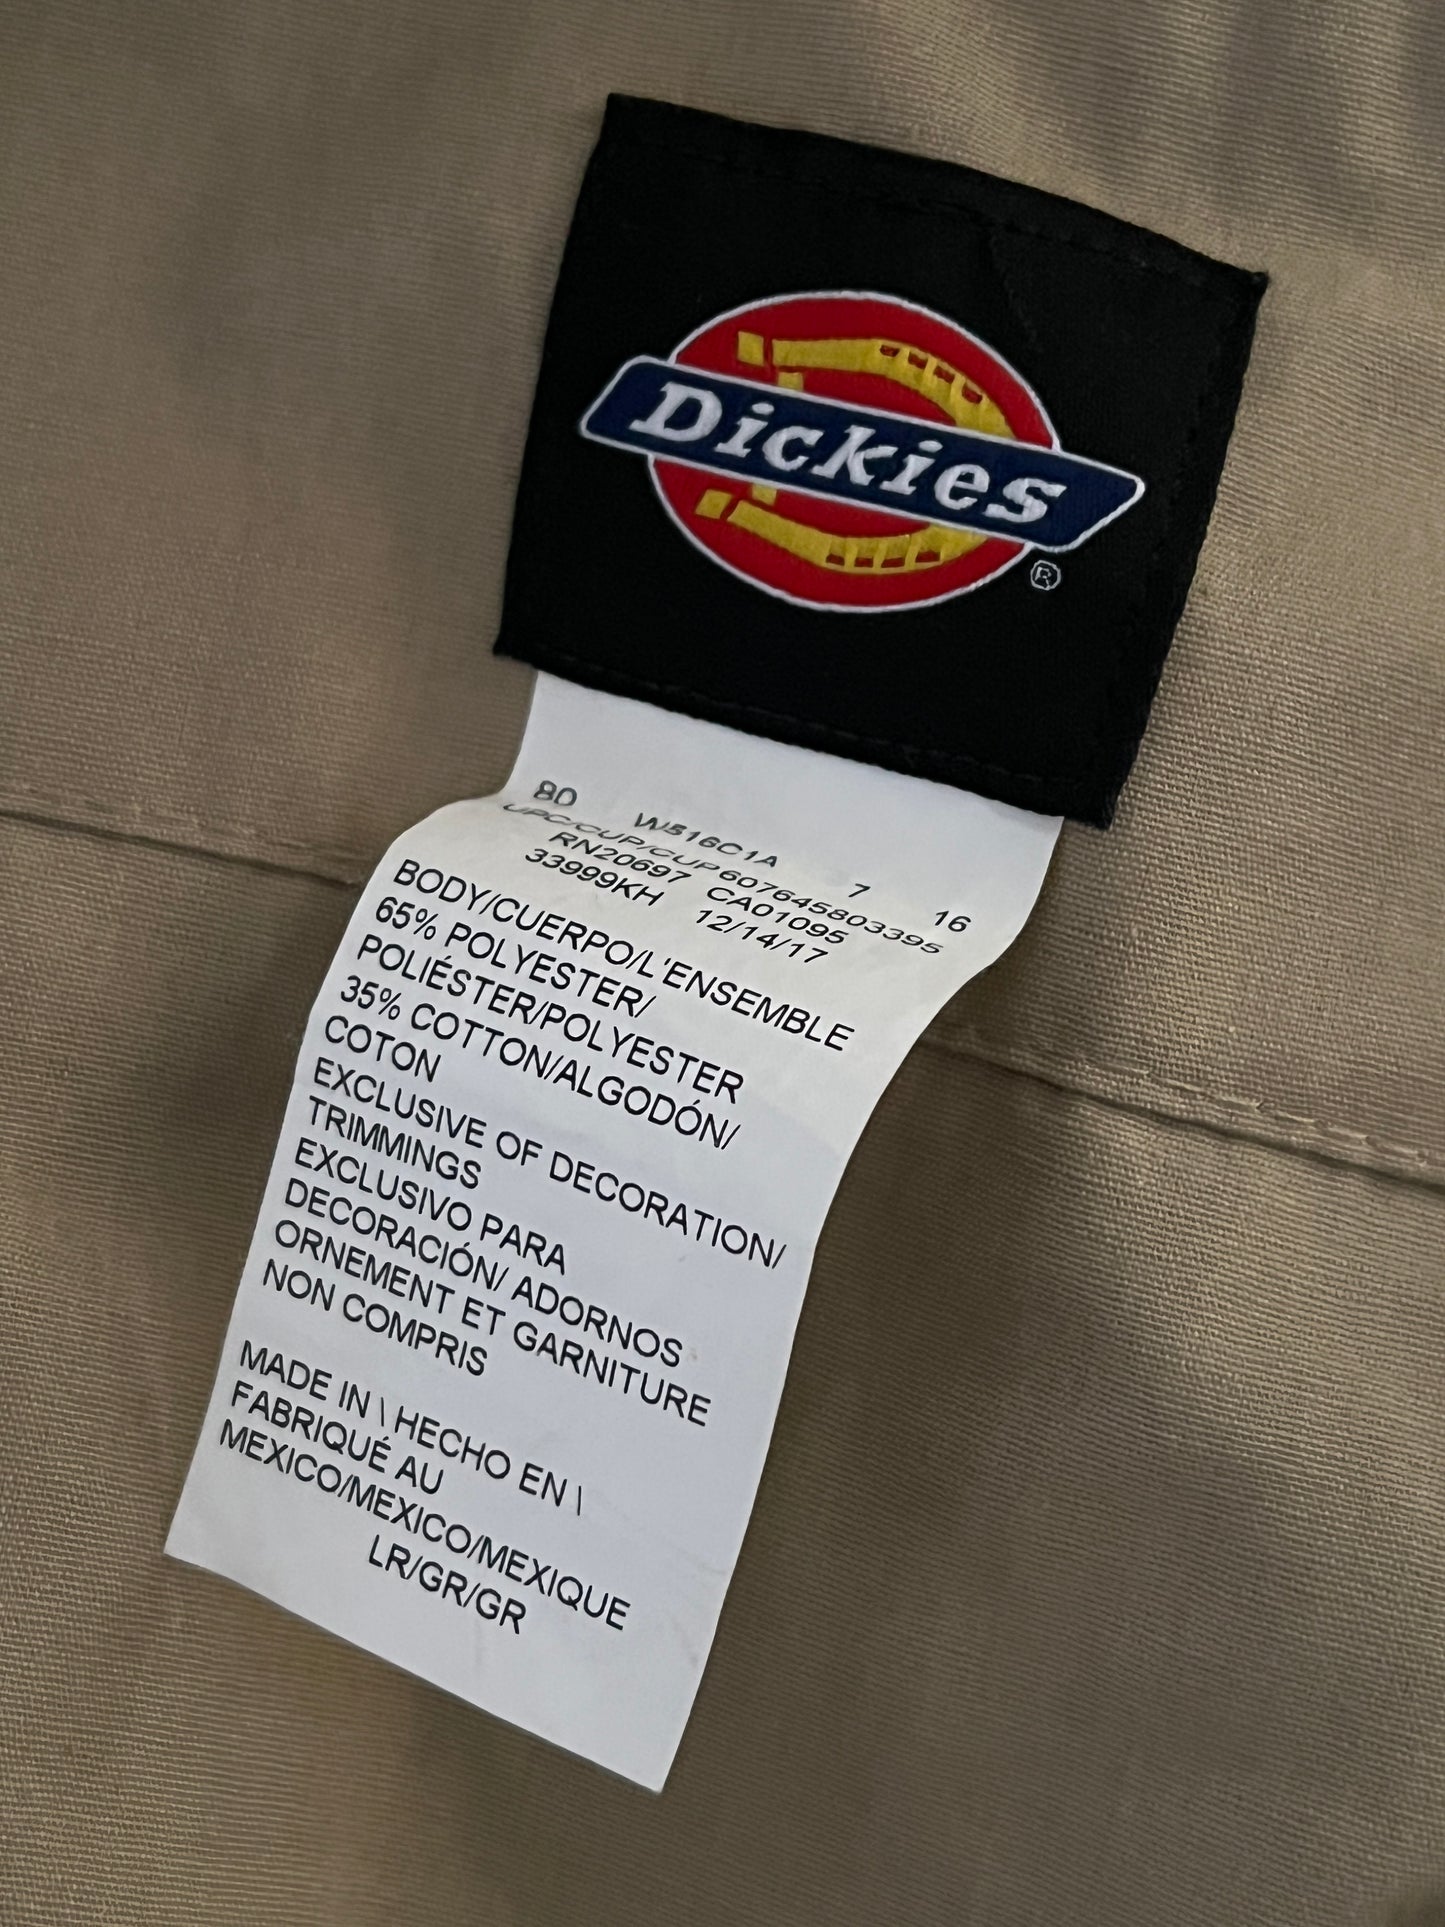 Dickies
®
80 W516C1A 7 16
UPC/CUP/CUP 607645803395
RN20697 CA01095
33999KH 12/14/17
BODY/CUERPO/L'ENSEMBLE
65% POLYESTER/
POLIÉSTER/POLYESTER
35% COTTON/ALGODÓN/
COTON
EXCLUSIVE OF DECORATION/
TRIMMINGS
EXCLUSIVO PARA
DECORACIÓN/ ADORNOS
ORNEMENT ET GARNITURE
NON COMPRIS
MADE IN \ HECHO EN \
FABRIQUÉ AU
MEXICO/MEXICO/MEXIQUE
LR/GR/GR